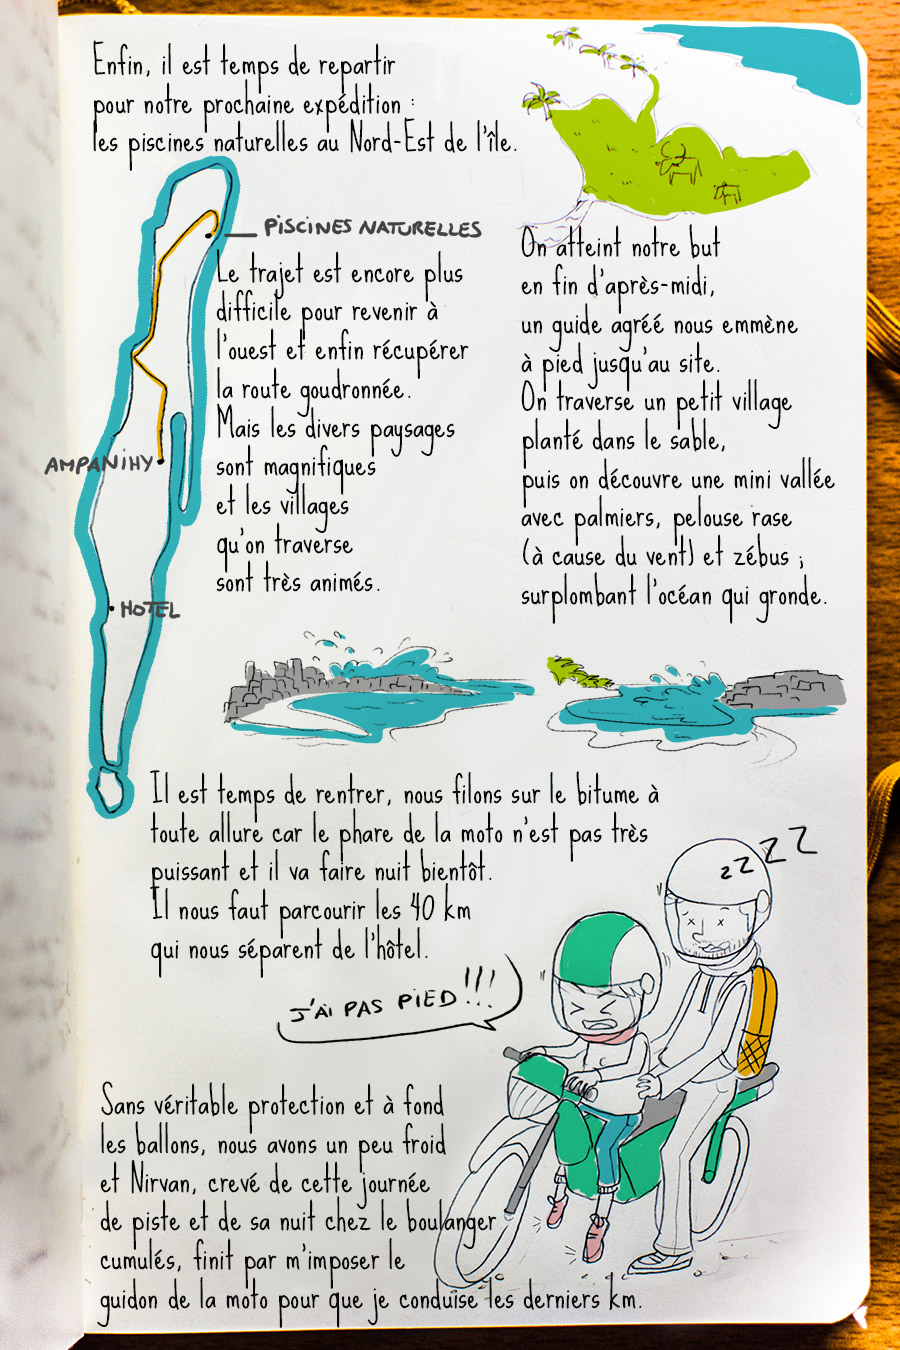 Enfin, il est temps de repartir
pour notre prochaine expédition :
les piscines naturelles au Nord-Est de l'île.
PISCINES NATURELLES
AMPANIHY
HOTEL
Le trajet est encore plus
difficile pour revenir à
l'ouest et enfin récupérer
la route goudronnée.
Mais les divers paysages
sont magnifiques
et les villages
qu'on traverse
sont très animés.
On atteint notre but
en fin d'après-midi,
un guide agréé nous emmène
à pied jusqu'au site.
On traverse un petit village
planté dans le sable,
puis on découvre une mini vallée
avec palmiers, pelouse rase
(à cause du vent) et zébus ;
surplombant l'océan qui gronde.
Il est temps de rentrer, nous filons sur le bitume à
toute allure car le phare de la moto n'est pas très
puissant et il va faire nuit bientôt.
Il nous faut parcourir les 40 km
qui nous séparent de l'hôtel.
zZZZ
J'AI PAS PIED!!!
Sans véritable protection et à fond
les ballons, nous avons un peu froid
et Nirvan, crevé de cette journée
de piste et de sa nuit chez le boulanger
cumulés, finit par m'imposer le
guidon de la moto pour que je conduise les derniers km.